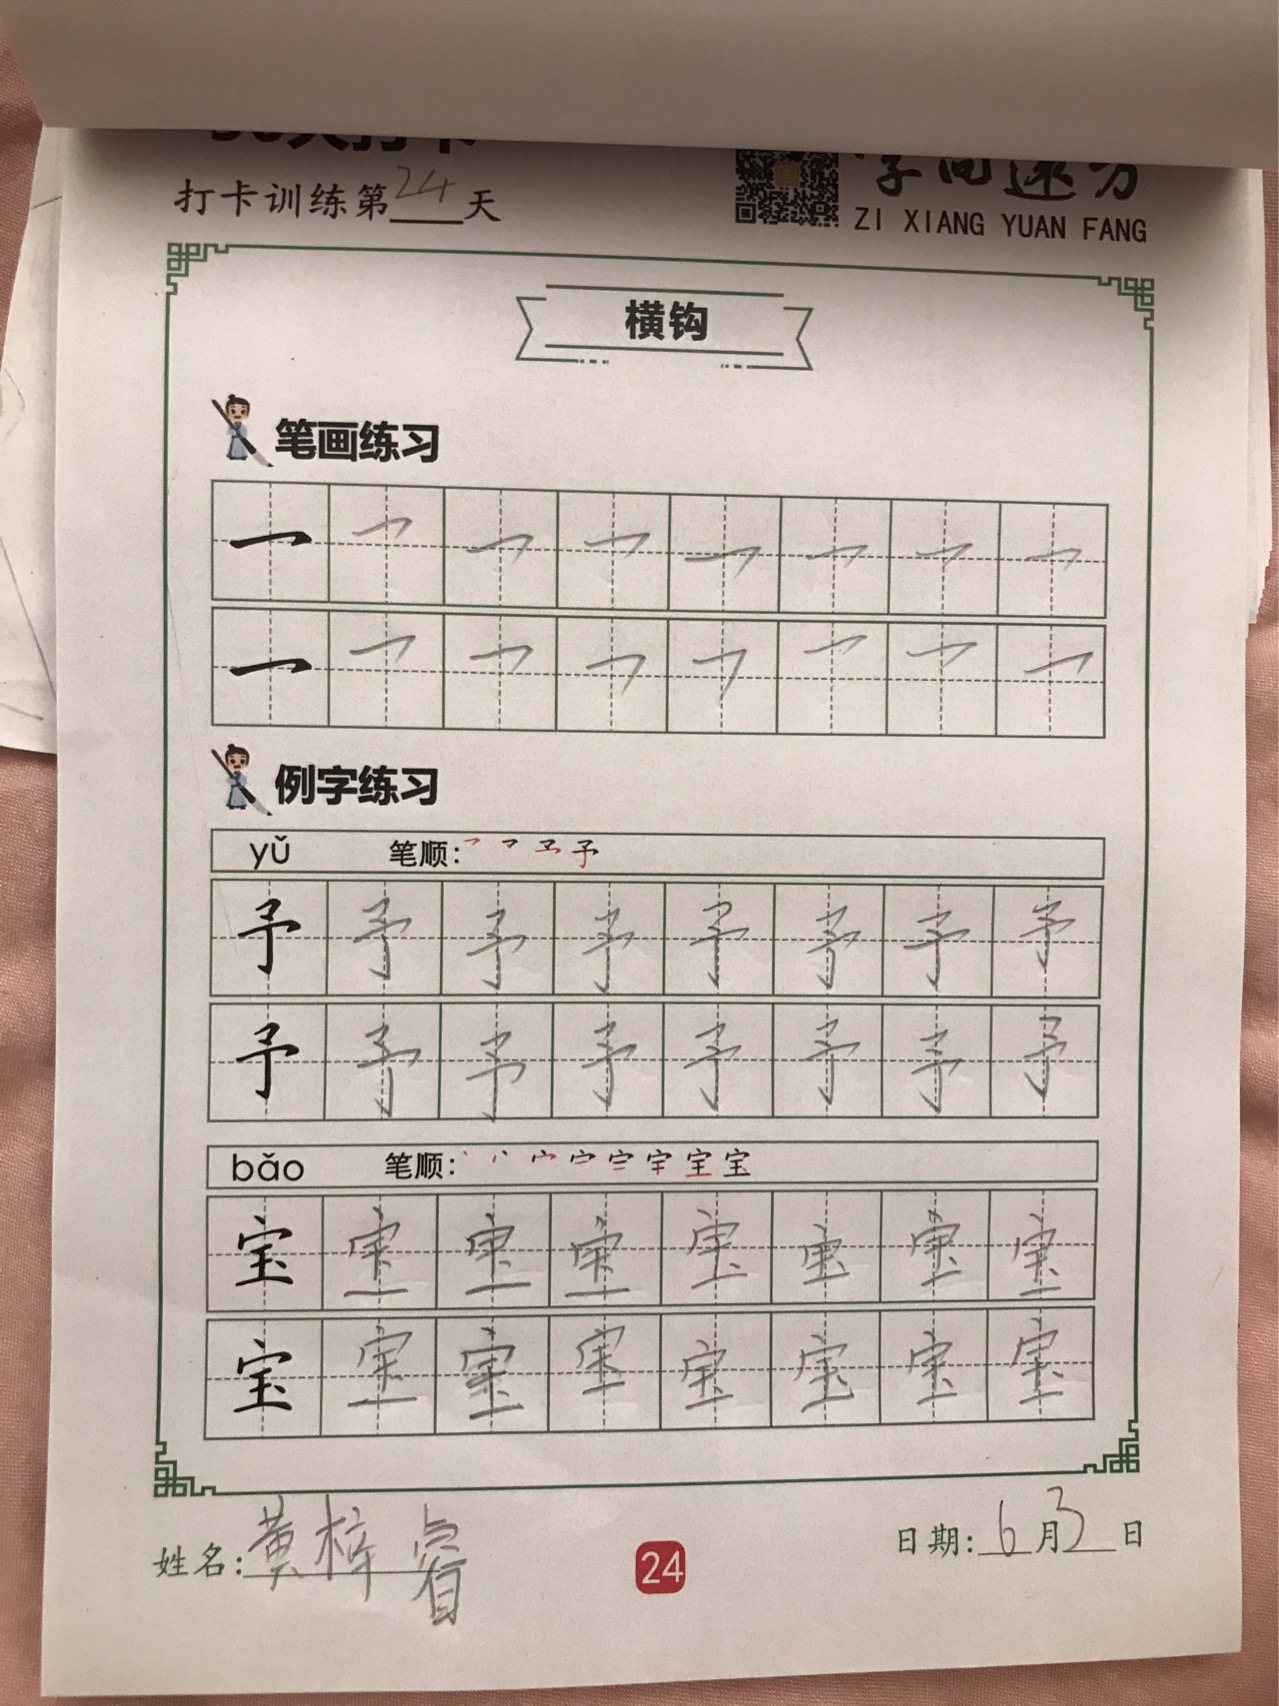 打卡训练第24天
ZI XIANG YUAN FANG
横钩
笔画练习
例字练习
yǔ 笔顺:
予 予 予 予 予 予 予 予
予 予 予 予 予 予 予 予
bǎo 笔顺:
宝 宝 宝 宝 宝 宝 宝 宝
宝 宝 宝 宝 宝 宝 宝 宝
姓名:黄梓睿
24
日期:6月3日